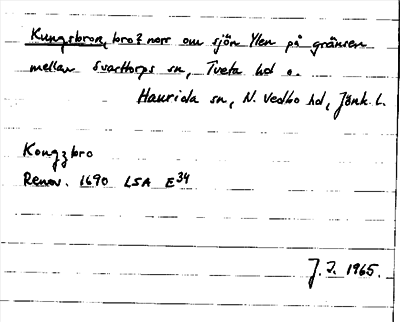 Kungsbron, bro? norr om sjön Ylen på gränsen
mellan Svarttorps sn, Tveta hd o.
Haurida sn, N. Vedbo hd, Jönk. L.
Kongzbro
Renov. 1690 LSA E34
J. I. 1965.